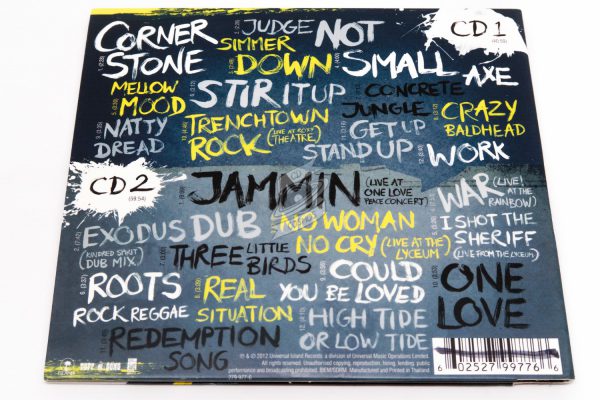 CD 1
CORNER STONE
JUDGE NOT
SIMMER DOWN
SMALL AXE
MELLOW MOOD
STIR IT UP
CONCRETE JUNGLE
CRAZY BALDHEAD
NATTY DREAD
TRENCHTOWN ROCK (LIVE AT ROXY THEATRE)
GET UP STAND UP
WORK
CD 2
(59:54)
JAMMIN (LIVE AT ONE LOVE PEACE CONCERT)
WAR (LIVE! AT THE RAINBOW)
EXODUS DUB (KINDRED SPIRIT DUB MIX)
NO WOMAN NO CRY (LIVE AT THE LYCEUM)
I SHOT THE SHERIFF (LIVE FROM THE LYCEUM)
THREE LITTLE BIRDS
ROOTS ROCK REGGAE
REAL SITUATION
COULD YOU BE LOVED
ONE LOVE
HIGH TIDE OR LOW TIDE
REDEMPTION SONG
℗ & © 2012 Universal Island Records, a division of Universal Music Operations Limited.
All Rights Reserved. Unauthorised copying, reproduction, hiring, lending, public
performance and broadcasting prohibited. BIEM/SDRM. Manufactured and Printed in Thailand
6 02527 99776 6